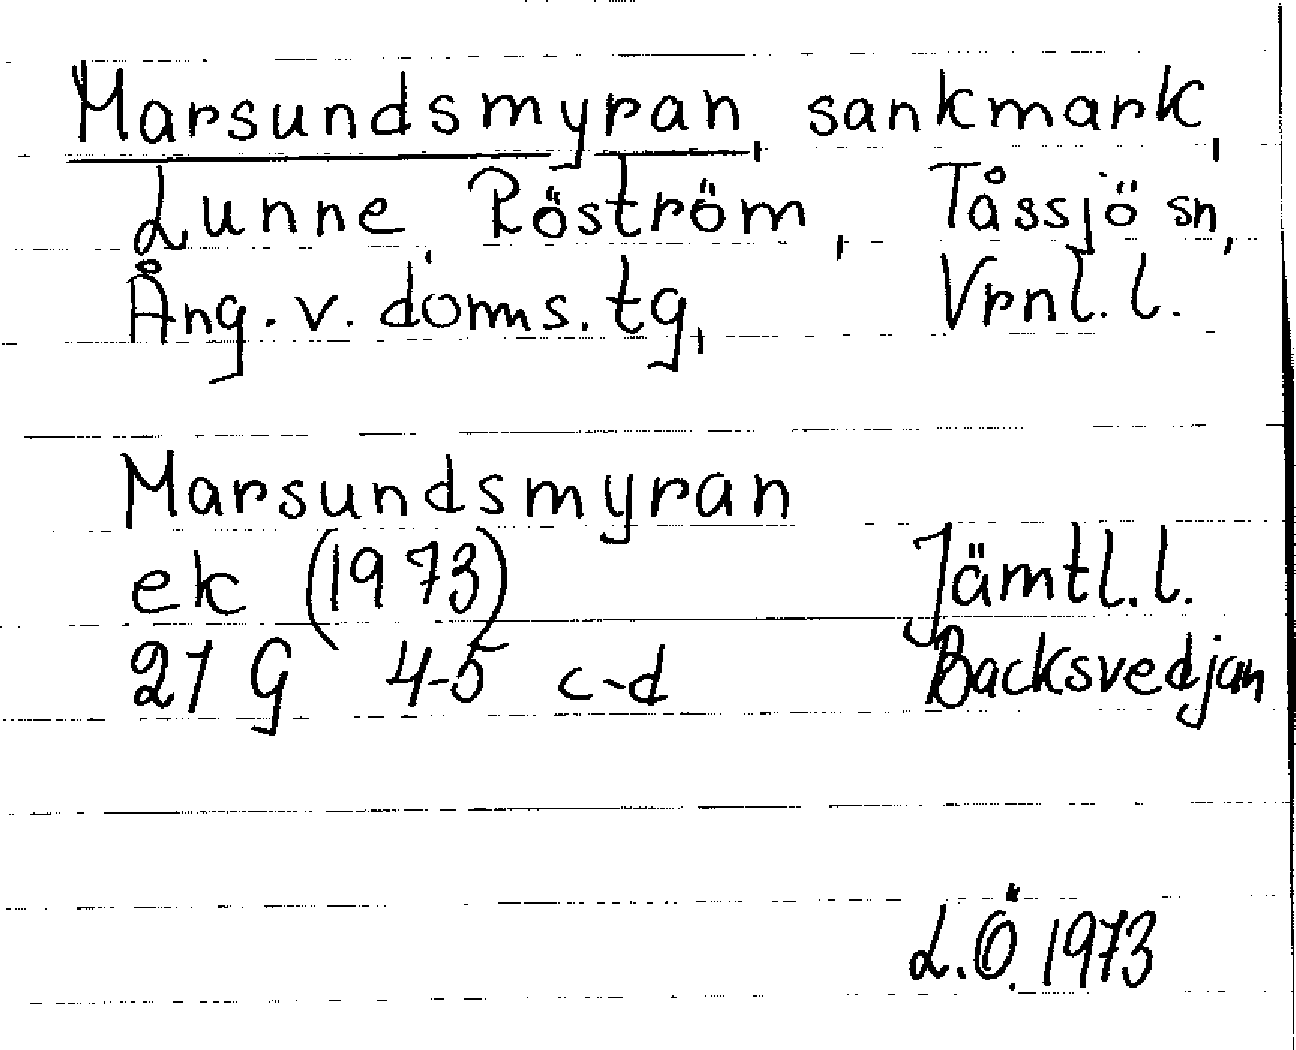 Marsundsmyran, sankmark,
Lunne, Röström, Tåssjö sn,
Ång. v. doms. tg, Vrnl. l.
Marsundsmyran
ek (1973) Jämtl. l.
21 G 4-5 c-d Backsvedjan
L.Ö. 1973